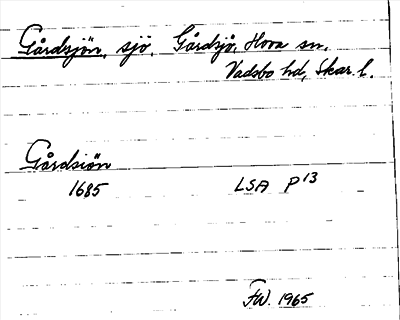 Gårdsjön, sjö, Gårdsjö, Hova sn,
Vadsbo hd, Skar. l.
Gårdsiön
1685 LSA P13
FW. 1965